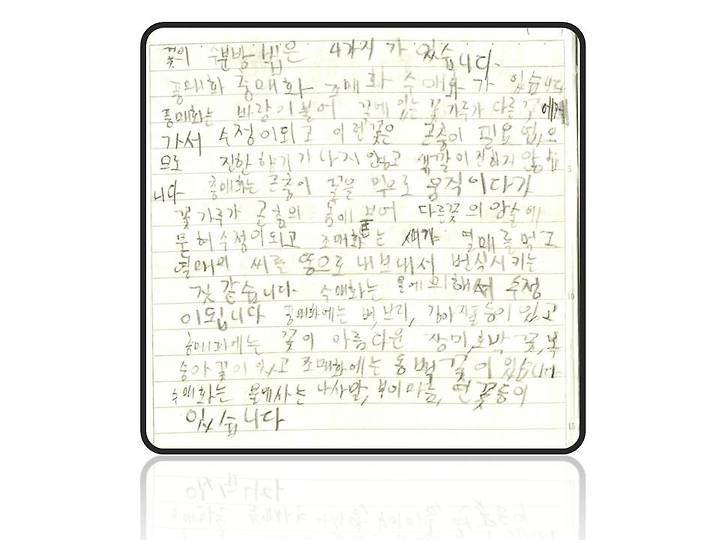 꽃의 수분방법은 4가지가 있습니다.
풍매화 충매화 조매화 수매화가 있습니다
풍매화는 바람이 불어 길에 있는 꽃가루가 다른 꽃에게
가서 수정이되고 이런꽃은 곤충이 필요 없으
므로 진한향기가 나지 않고 색깔이 진하지 않습
니다 충매화는 곤충이 꿀을 먹으로 움직이다가
꽃가루가 곤충의 몸에 묻어 다른꽃의 암술에
묻혀수정이되고 조매화는 새가 열매를 먹고
열매의 씨를 똥으로 내보내서 번식시키는
것 같습니다. 수매화는 물에의해서 수정
이됩니다 풍매화에는 벼, 보리, 강아지풀등이 있고
충매화에는 꽃이 아름다운 장미,호박 꽃,복
숭아꽃이 있고 조매화에는 동백 꽃이 있습니다
수매화는 물에사는 나사말, 붕어마름, 연꽃등이
있습니다